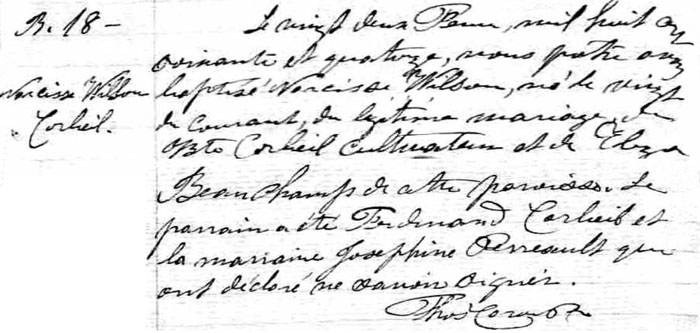 B. 18 –
Narcisse Wilson
Corbeil.
Le vingt deux Fevrier, mil huit cent
soixante et quatorze, nous prêtre avons
baptisé Narcisse Wilson, né le vingt
du courant, du légitime mariage, de
Bte Corbeil Cultivateur et de Eliza
Beauchamp de cette paroisse. Le
parrain a été Ferdinand Corbeil et
la marraine Josephine Perreault qui
ont déclaré ne savoir signer.
Thos